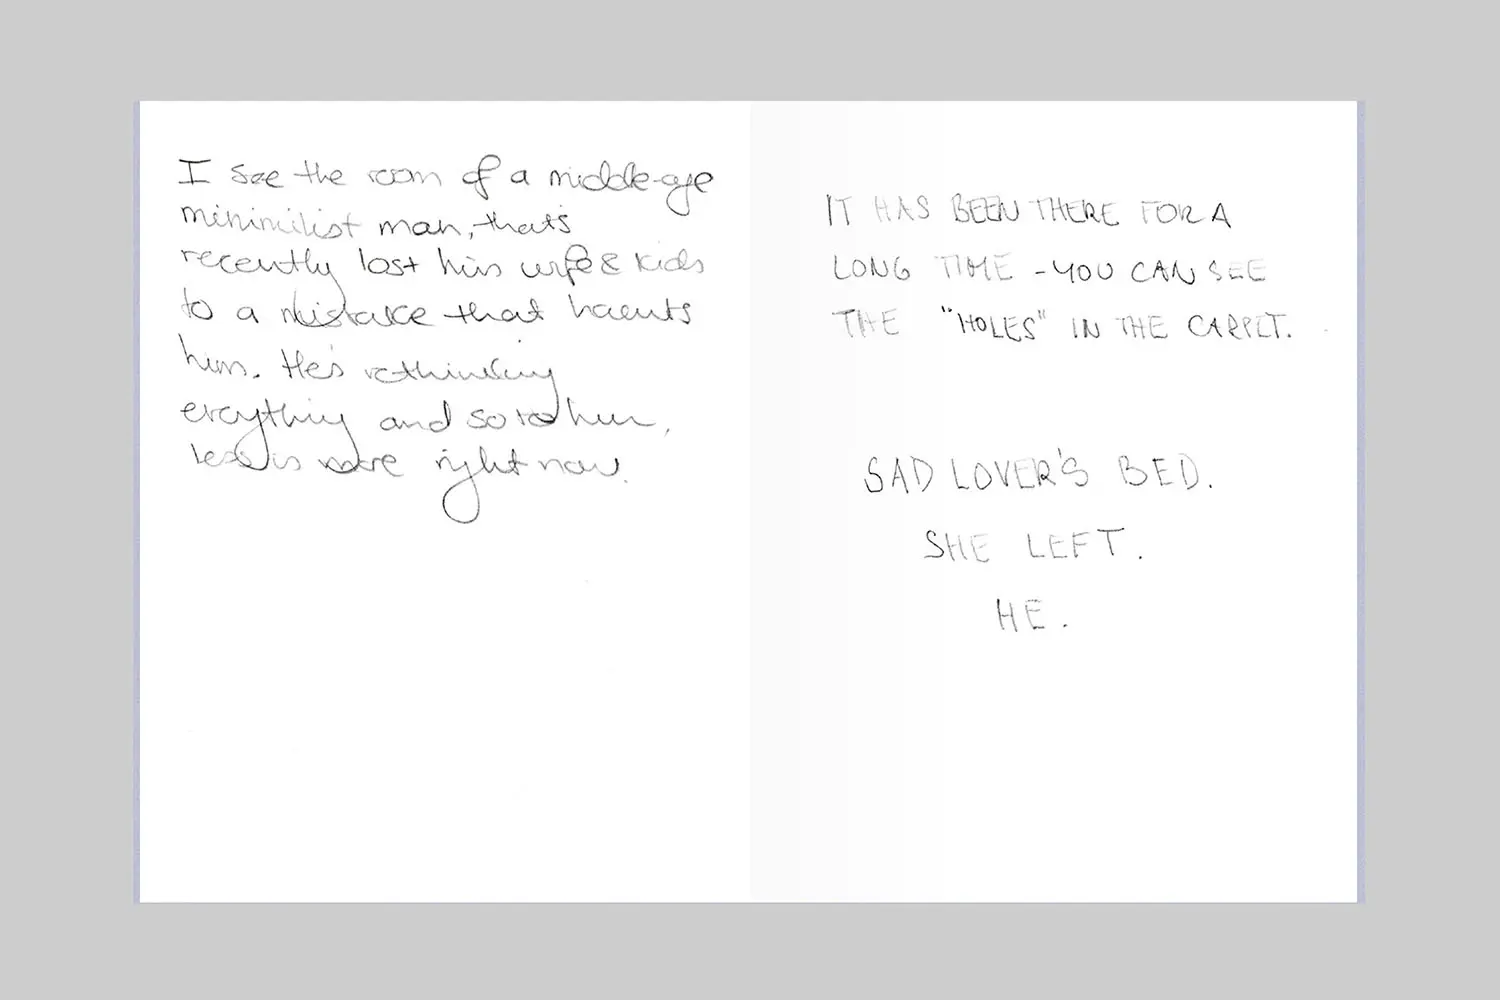 I see the room of a middle-age
minimilist man, that's
recently lost his wife & kids
to a mistake that haunts
him. He's rethinking
erything and so to him,
less is more right now.
IT HAS BEEN THERE FOR A
LONG TIME - YOU CAN SEE
THE "HOLES" IN THE CARPET.
SAD LOVER'S BED.
SHE LEFT.
HE.